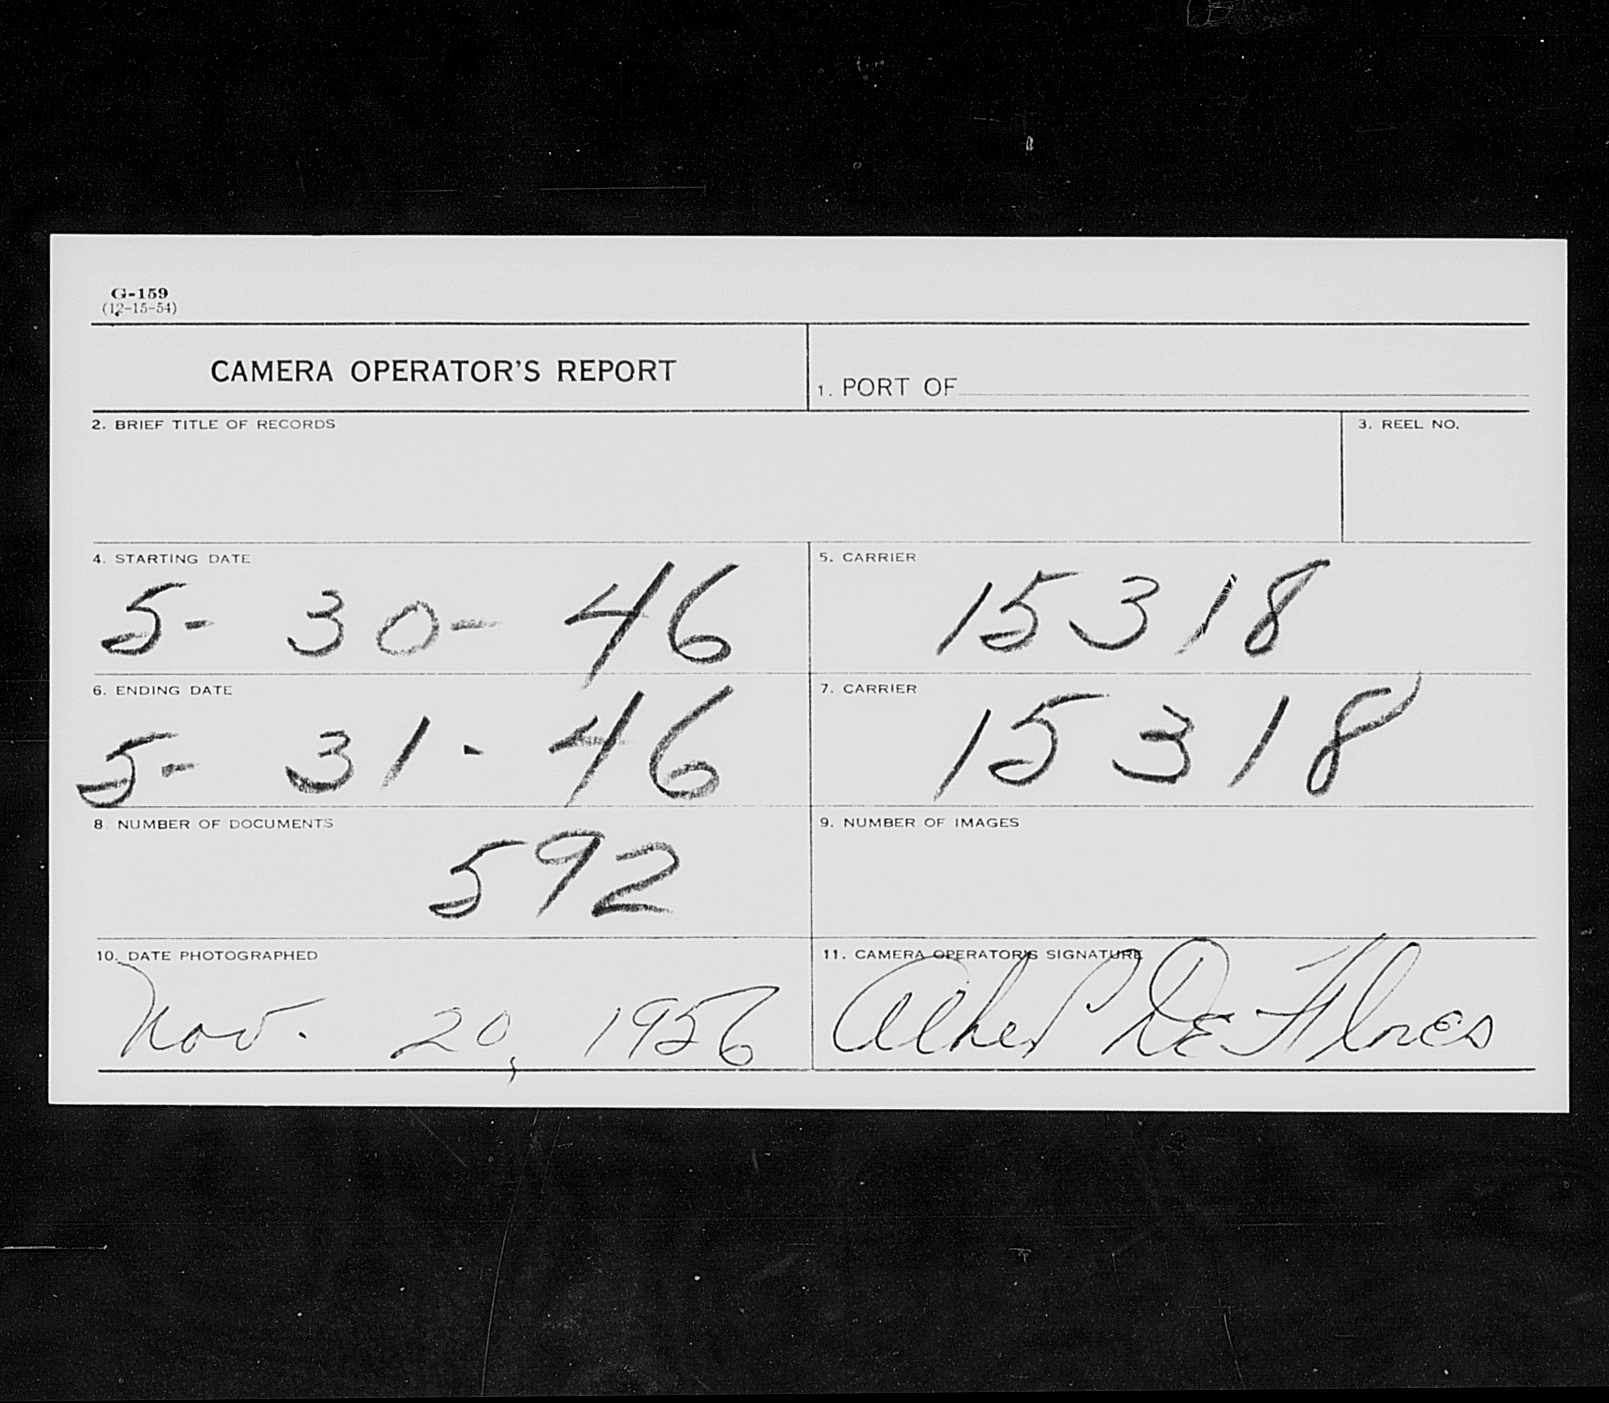 G-159
(12-15-54)
CAMERA OPERATOR'S REPORT
1. PORT OF
2. BRIEF TITLE OF RECORDS
3. REEL NO.
4. STARTING DATE
5- 30- 46
5. CARRIER
15318
6. ENDING DATE
5- 31- 46
7. CARRIER
15318
8. NUMBER OF DOCUMENTS
592
9. NUMBER OF IMAGES
10. DATE PHOTOGRAPHED
Nov. 20, 1956
11. CAMERA OPERATOR'S SIGNATURE
De Flores